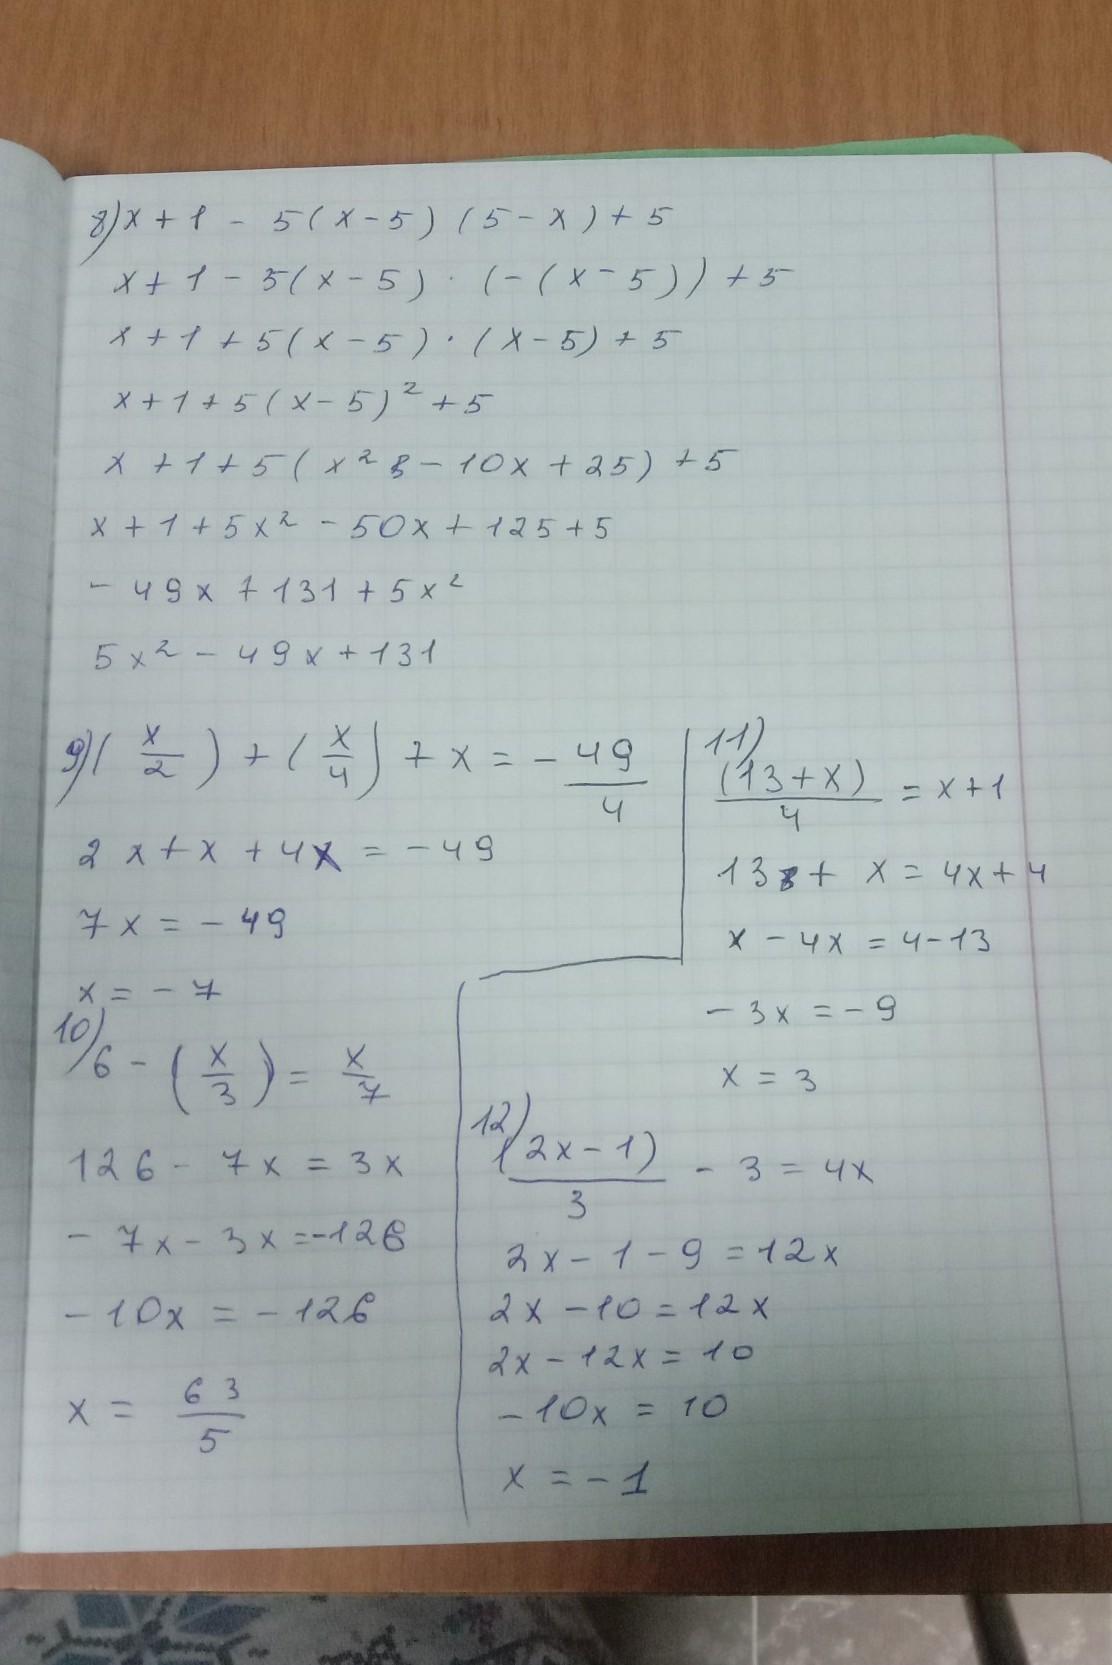 8) x + 1 - 5(x-5)(5-x)+5
x + 1 - 5(x-5) · (-(x-5)) + 5
x + 1 + 5(x-5) · (x-5) + 5
x + 1 + 5(x-5)² + 5
x + 1 + 5(x² - 10x + 25) + 5
x + 1 + 5x² - 50x + 125 + 5
- 49x + 131 + 5x²
5x² - 49x + 131
9) (x/2) + (x/4) + x = - 49/4
2x + x + 4x = - 49
7x = - 49
x = - 7
10) 6 - (x/3) = x/7
126 - 7x = 3x
- 7x - 3x = -126
- 10x = - 126
x = 63/5
11)
(13+x)/4 = x+1
13 + x = 4x + 4
x - 4x = 4-13
- 3x = - 9
x = 3
12)
(2x-1)/3 - 3 = 4x
2x - 1 - 9 = 12x
2x - 10 = 12x
2x - 12x = 10
- 10x = 10
x = - 1